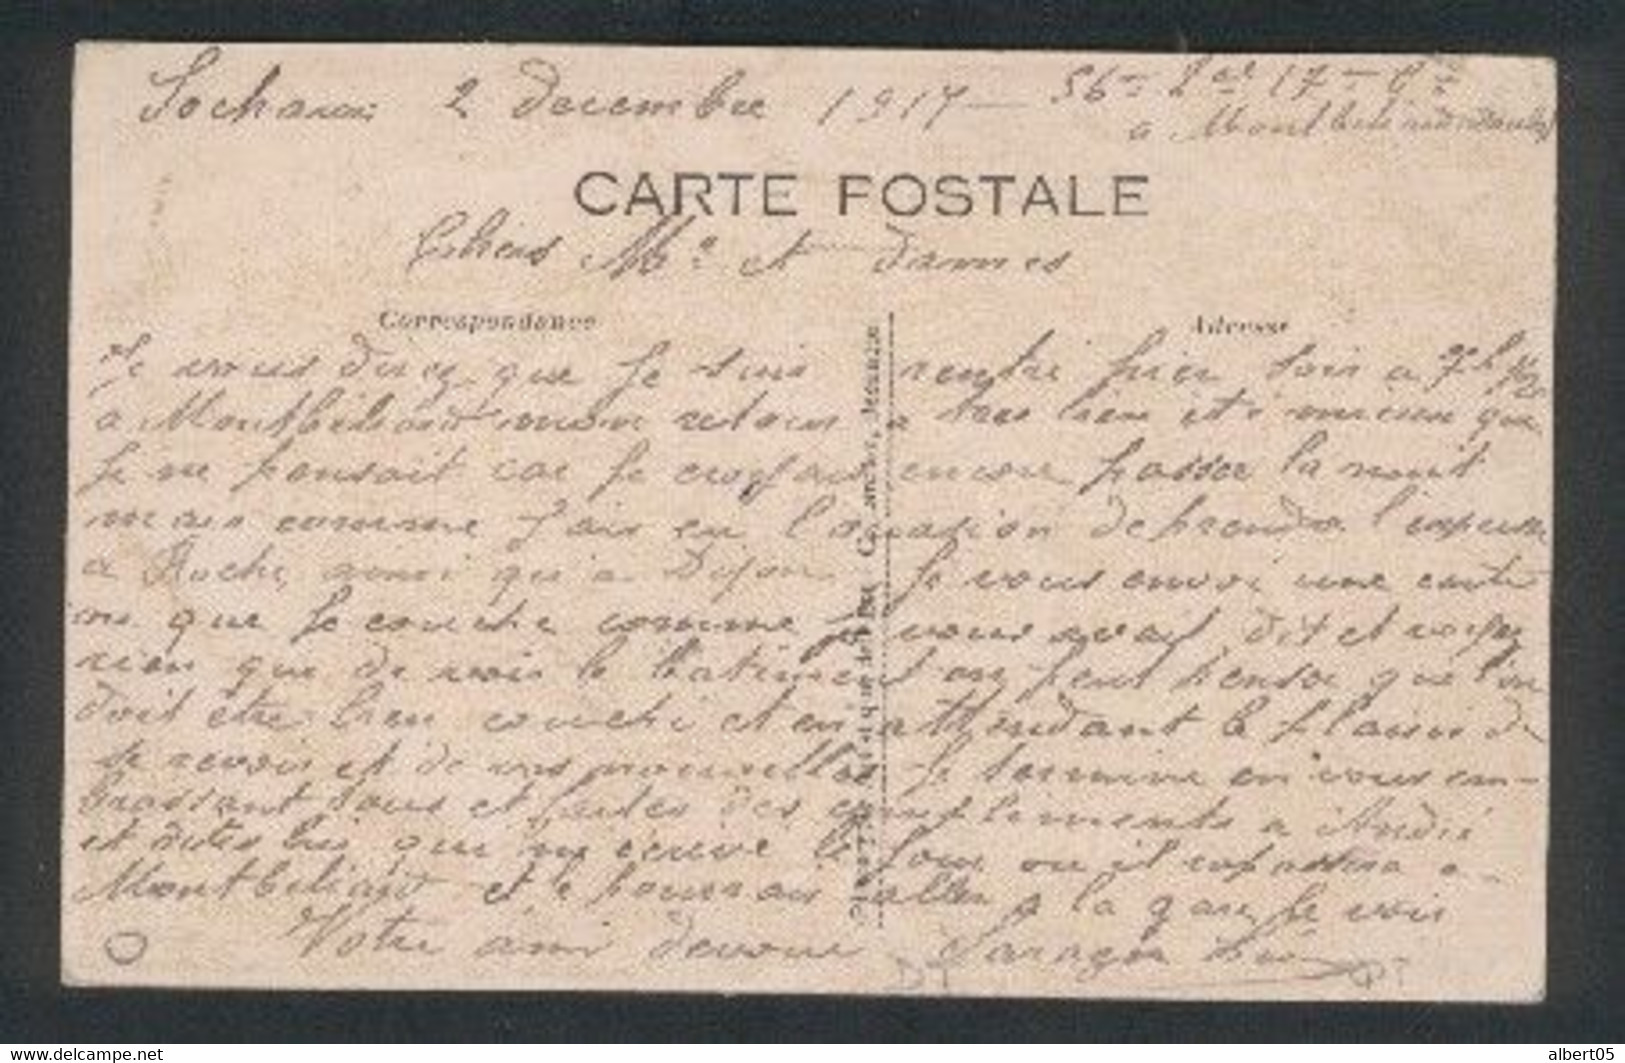 Sochaux 2 decembre 1917 - 56e 17 - 
a Montbeliard Doubs
CARTE POSTALE
Chers Mr et dames
Correspondance
Adresse
Je vous direz que je suis rentré hier soir a 9h 1/2
a Montbéliard mon retour a tres bien été mieux que
je ne pensait car je croyais encore passer la nuit
mais comme j'ais eu l'occasion de prendre l'express
a Roche ainsi qu'a Dijon Je vous envoi une carte
que je couche comme je vous avait dit et
rien que de voir le batiment on peut penser que l'on
doit être bien couché et en attendant le plaisir de
se revoir et de vos nouvelles Je termine en vous em-
brassant tous et faites des compliments a André
et dites lui que m'écrive le jour ou il repassera a
Montbéliart et je pourrais aller a la gare le voir
Votre ami devoué
DT
albert05